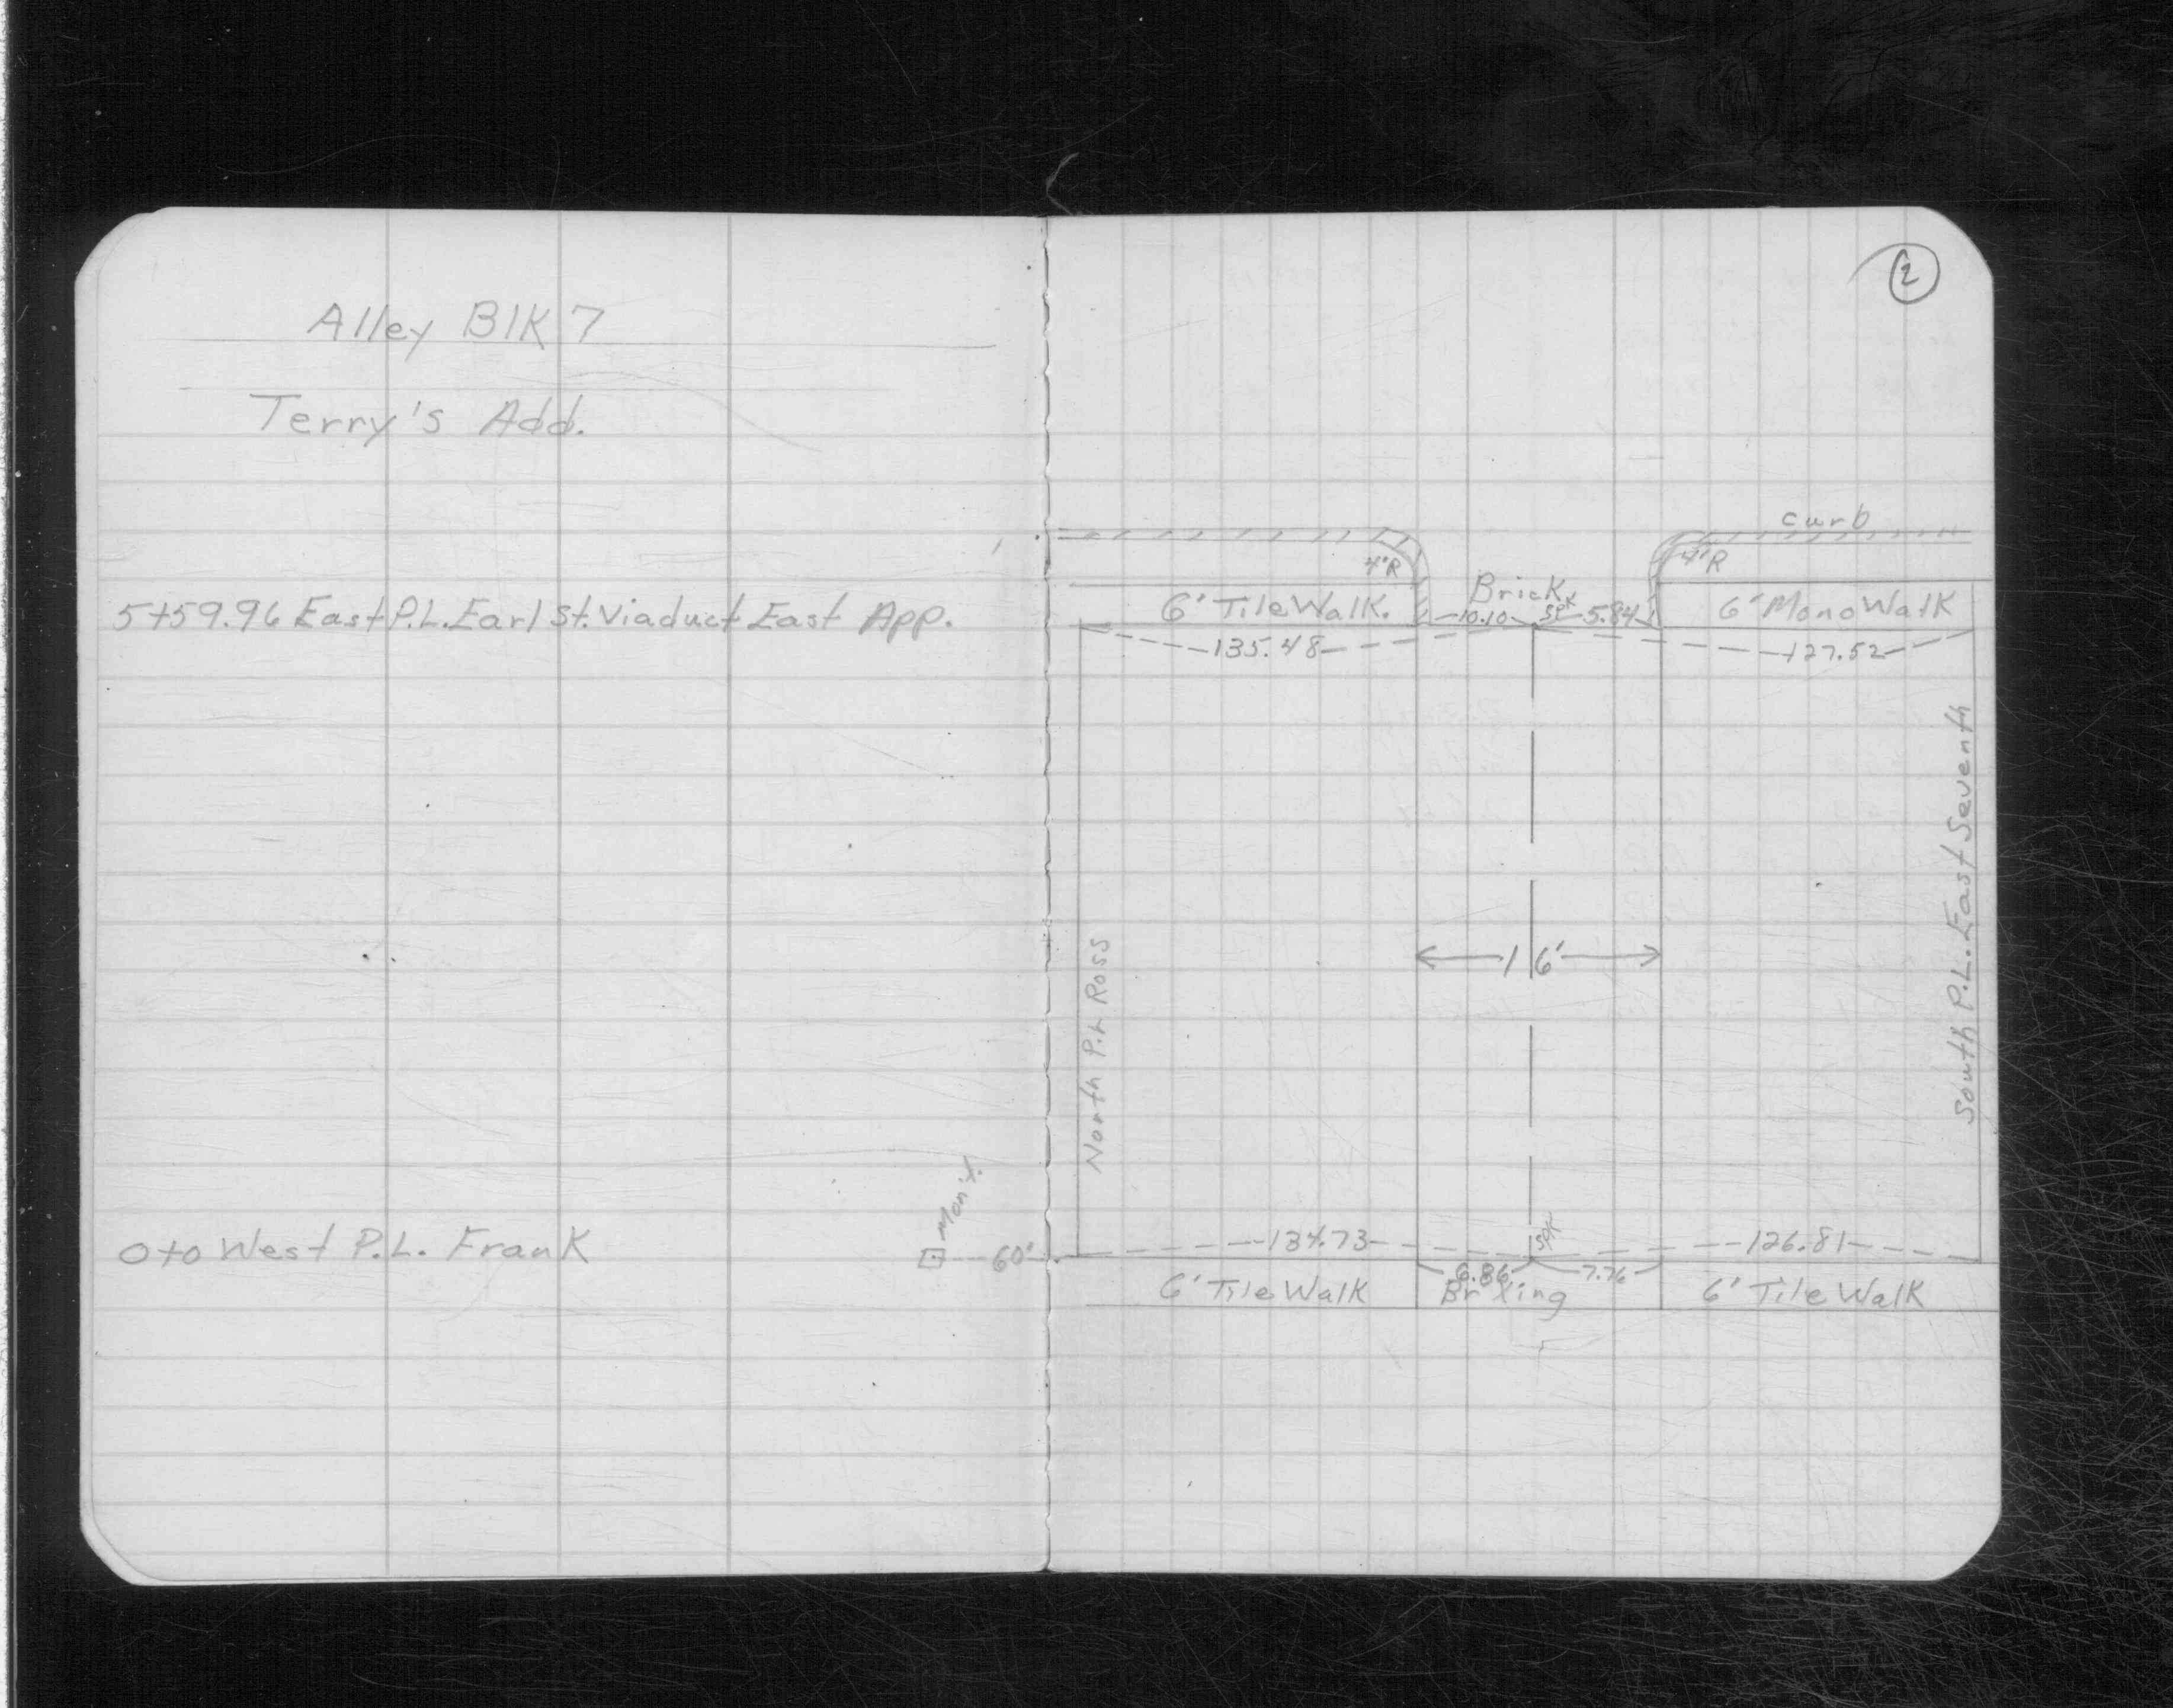 Alley Blk 7
Terry's Add.
5+59.96 East P.L. Earl St. Viaduct East App.
0+0 West P.L. Frank
Mon't.
60'
2
curb
4'R
4'R
Brick
6' Tile Walk.
10.10
Spk
5.84
6' Mono Walk
135.48
127.52
North P.L Ross
16'
South P.L. East Seventh
134.73
Spk
126.81
6.86
7.76
6' Tile Walk
Br Xing
6' Tile Walk